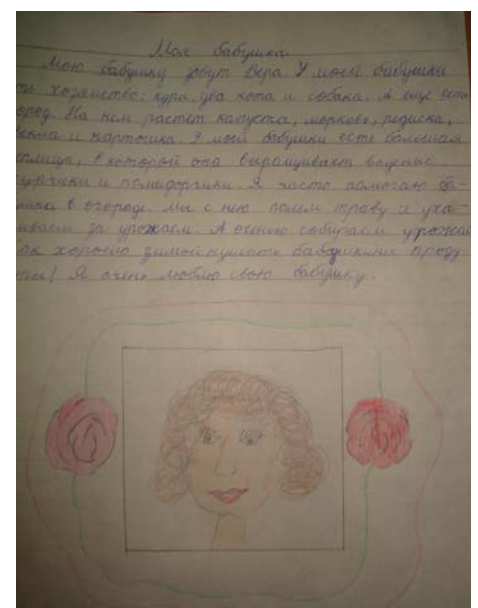 Моя бабушка
Мою бабушку зовут Вера. У моей бабушки
хозяйство: куры, два кота и собака. А еще есть
ород. На нем растет капуста, морковь, редиска,
екла и картошка. У моей бабушки есть большая
еплица, в которой она выращивает вкусные
гурчики и помидорчики. Я часто помогаю ба-
в огороде. Мы с нею полем траву и уха-
иваем за урожаем. А осенью собираем урожай
ак хорошо зимой кушать бабушкины проду-
ты! Я очень люблю свою бабушку.